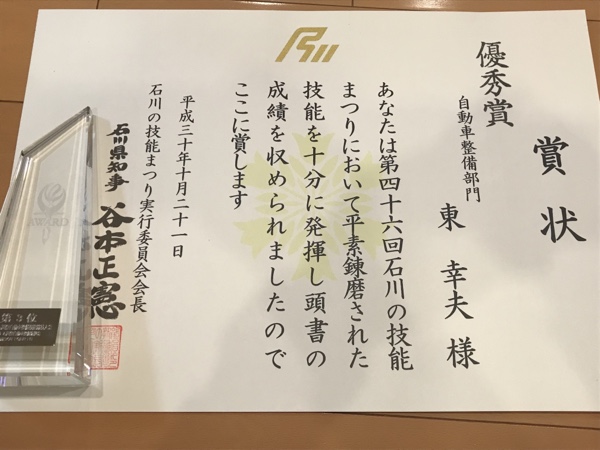 賞状
優秀賞
自動車整備部門
東 幸夫 様
あなたは第四十六回石川の技能
まつりにおいて平素錬磨された
技能を十分に発揮し頭書の
成績を収められましたので
ここに賞します
平成三十年十月二十一日
石川の技能まつり実行委員会会長
石川県知事 谷本正憲
第3位